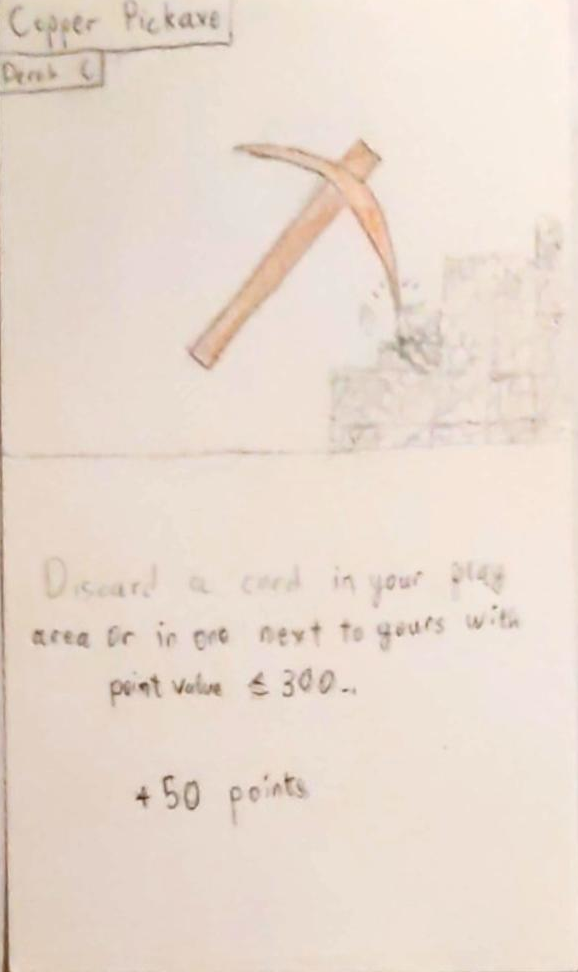 Copper Pickaxe
Derek C
Discard a card in your play
area or in one next to yours with
point value ≤ 300.
+50 points